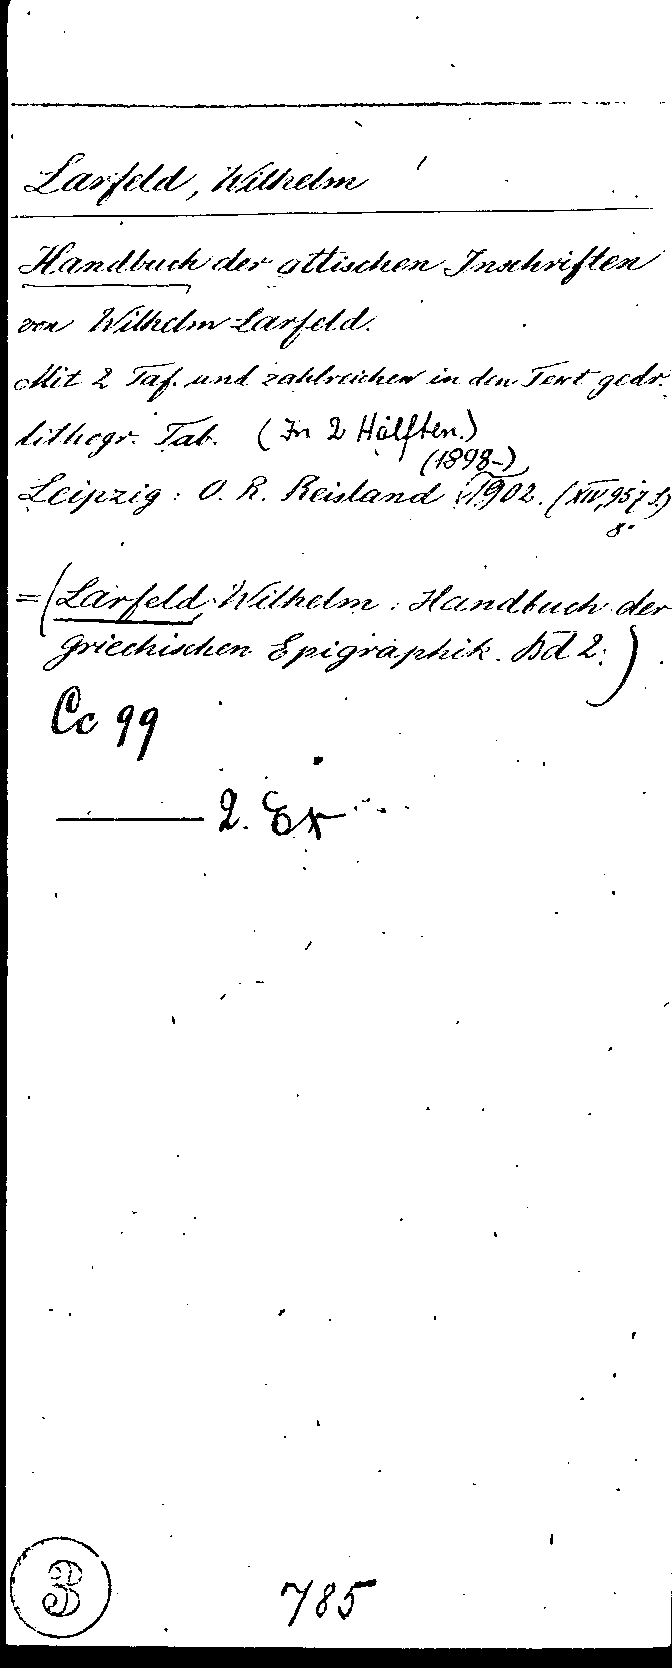 Larfeld, Wilhelm
Handbuch der attischen Inschriften
von Wilhelm Larfeld.
Mit 2 Taf. und zahlreichen in den Text gedr.
lithogr. Tab. (In 2 Hälften.)
(1898-)
Leipzig: O. R. Reisland 1902. (XIV, 957 S.)
8°
=(Larfeld, Wilhelm: Handbuch der
griechischen Epigraphik. Bd 2.)
Cc 99
——— 2. Ex
3 785